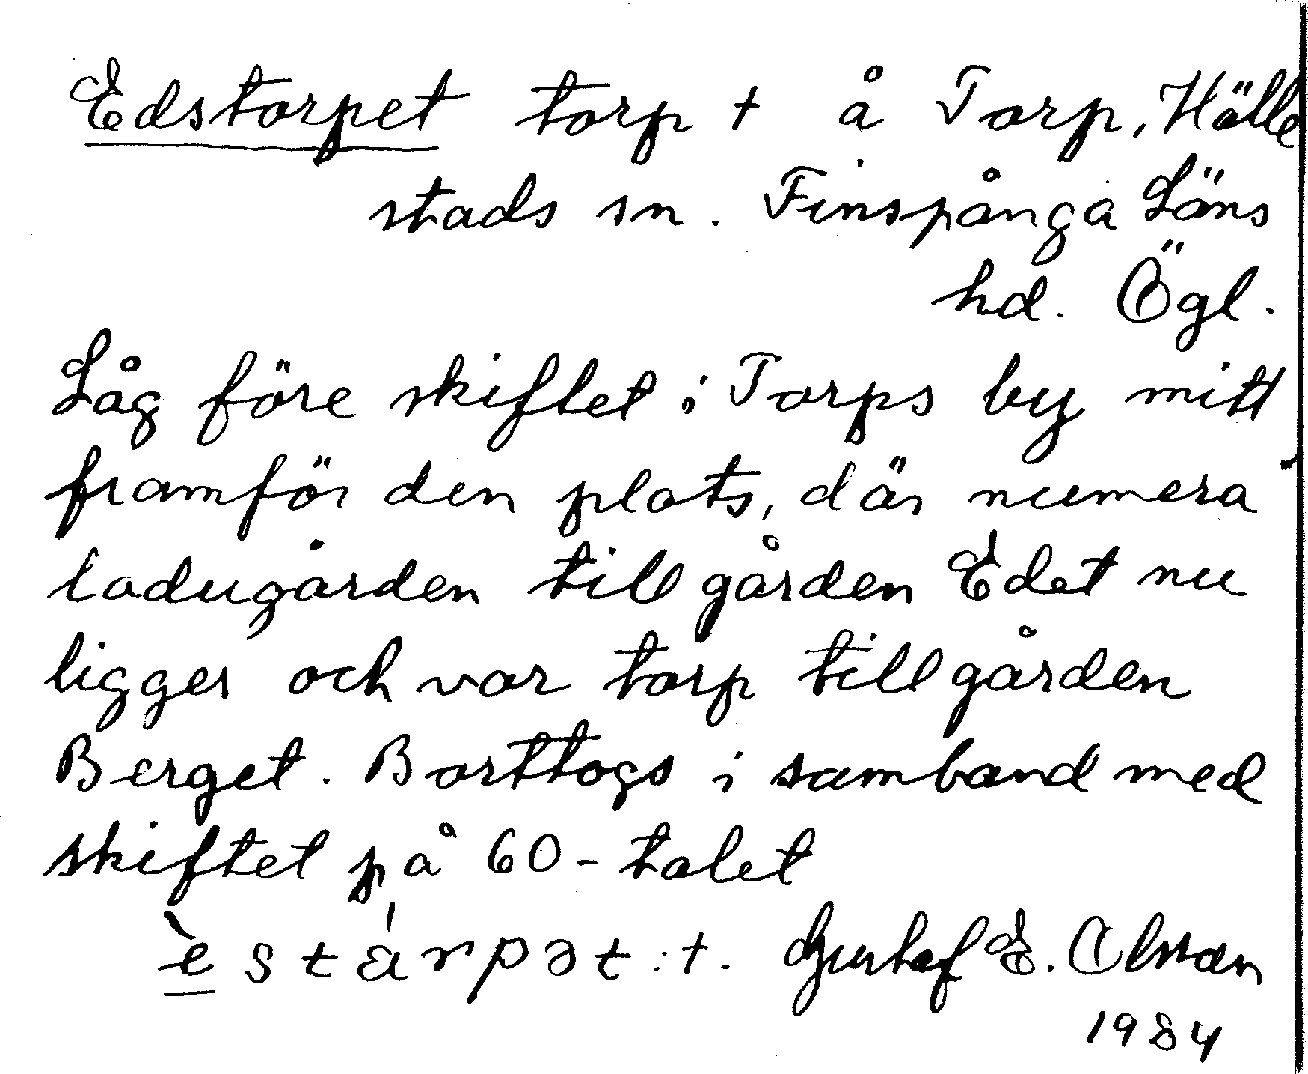 Edstorpet torp + å Torp, Hälle
stads sn. Finspånga Läns
hd. Ögl.
Låg före skiftet i Torps by mitt
framför den plats, där numera
ladugården till gården Edet nu
ligger och var torp till gården
Berget. Borttogs i samband med
skiftet på 60-talet
Gustaf E. Olsson
1934